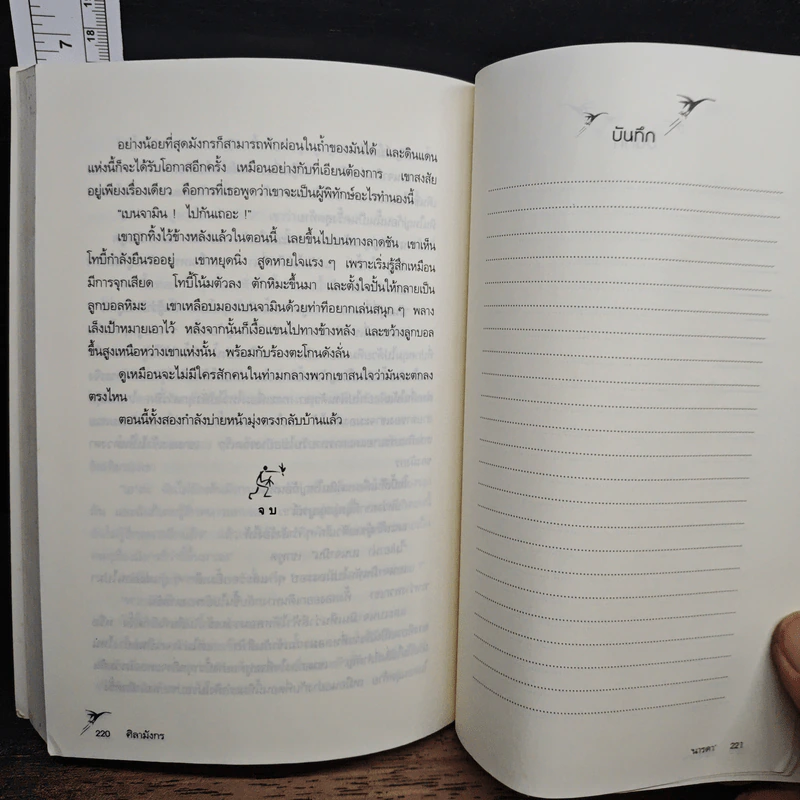 7
18
อย่างน้อยที่สุดมังกรก็สามารถพักผ่อนในถ้ำของมันได้ และดินแดน
แห่งนี้ก็จะได้รับโอกาสอีกครั้ง เหมือนอย่างกับที่เอียนต้องการ เขาสงสัย
อยู่เพียงเรื่องเดียว คือการที่เธอพูดว่าเขาจะเป็นผู้พิทักษ์อะไรทำนองนี้
"เบนจามิน ! ไปกันเถอะ !"
เขาถูกทิ้งไว้ข้างหลังแล้วในตอนนี้ เลยขึ้นไปบนทางลาดชัน เขาเห็น
โทบี้กำลังยืนรออยู่ เขาหยุดนิ่ง สูดหายใจแรง ๆ เพราะเริ่มรู้สึกเหมือน
มีการจุกเสียด โทบี้โน้มตัวลง ตักหิมะขึ้นมา และตั้งใจปั้นให้กลายเป็น
ลูกบอลหิมะ เขาเหลือบมองเบนจามินด้วยท่าทีอยากเล่นสนุก ๆ พลาง
เล็งเป้าหมายเอาไว้ หลังจากนั้นก็เงื้อแขนไปทางข้างหลัง และขว้างลูกบอล
ขึ้นสูงเหนือหว่างเขาแห่งนั้น พร้อมกับร้องตะโกนดังลั่น
ดูเหมือนจะไม่มีใครสักคนในท่ามกลางพวกเขาสนใจว่ามันจะตกลง
ตรงไหน
ตอนนี้ทั้งสองกำลังบ่ายหน้ามุ่งตรงกลับบ้านแล้ว
จบ
220 ศิลามังกร
บันทึก
221